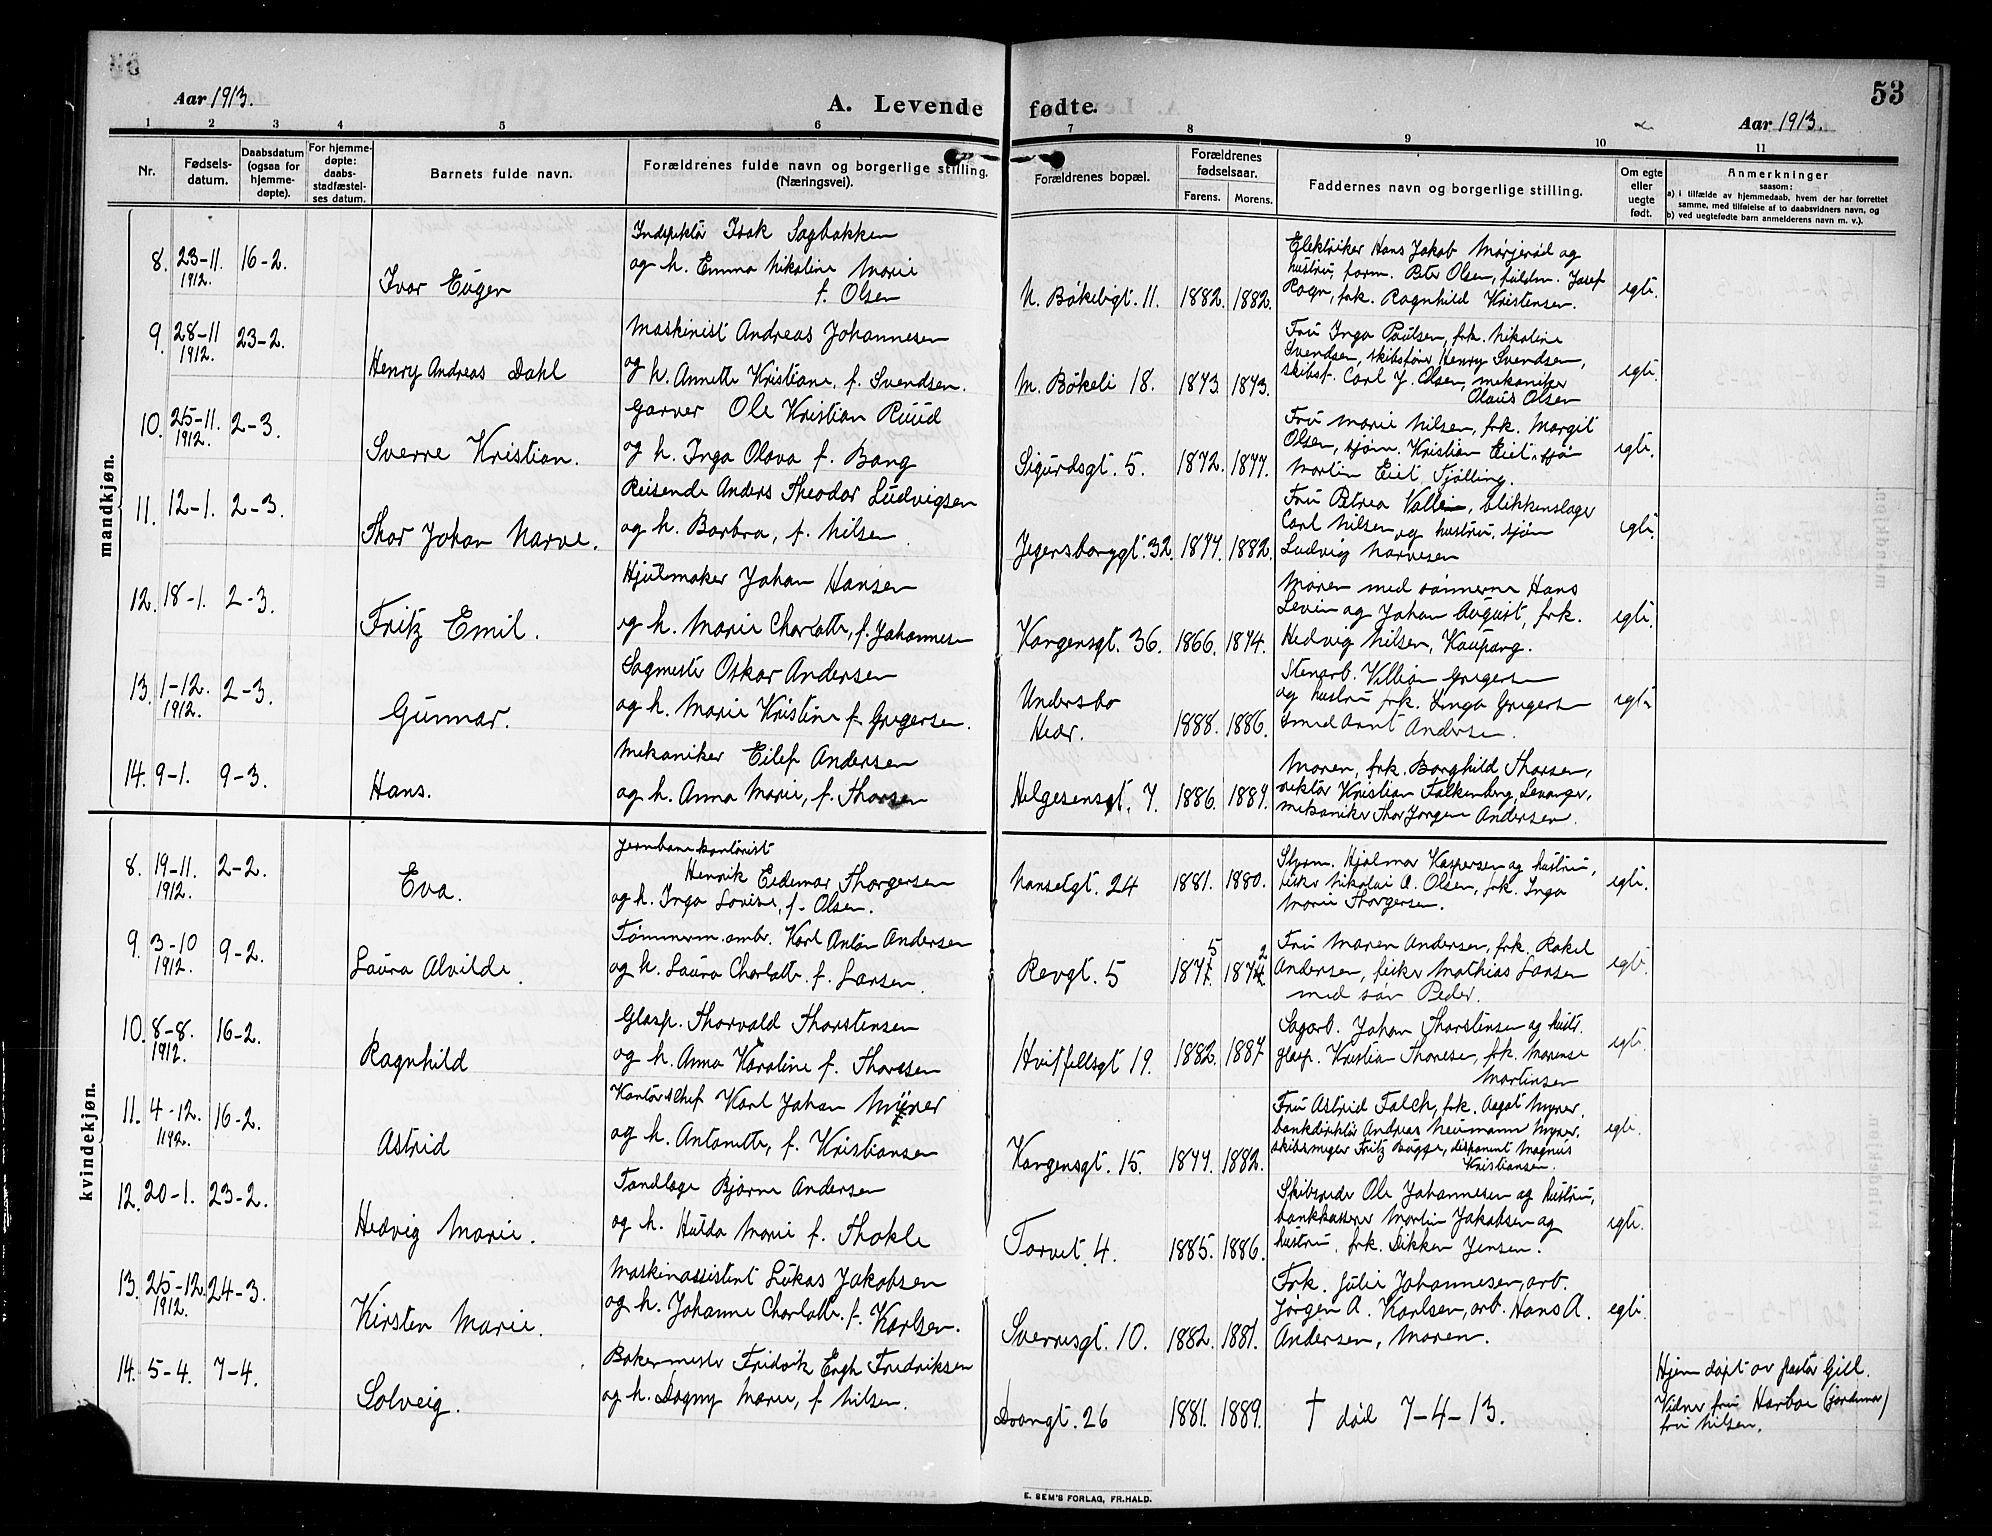 53
Aar 1913.
A. Levende fødte.
Aar 1913.
1 2 3 4 5 6 7 8 9 10 11
Nr.
Fødsels-
datum.
Daabsdatum
(ogsaa for
hjemme-
døpte).
For hjemme-
døpte:
daabs-
stadfæstel-
ses datum.
Barnets fulde navn.
Forældrenes fulde navn og borgerlige stilling.
(Næringsvei).
Forældrenes bopæl.
Forældrenes
fødselsaar.
Farens. Morens.
Faddernes navn og borgerlige stilling.
Om egte
eller
uegte
født.
Anmerkninger
saasom:
a) i tilfælde av hjemmedaab, hvem der har forrettet
samme, med tilføielse af to daabsvidners navn, og
b) ved uegtefødte barn anmelderens navn m. v.).
mandkjøn.
8. 23-11. 1912. 16-2.
Ivar Eugen
Inspektör Isak Sagbakken
og h. Emma Nikoline Marie
f. Olsen
N. Bökeligt. 11. 1882. 1882.
Elektriker Hans Jakob Mörjeröd og
hustru, form. Peter Olsen, fuldm. Josef
Rogn, frk. Ragnhild Kristensen.
egte.
9. 28-11 1912. 23-2.
Henry Andreas Dahl
Maskinist Andreas Johannesen
og h. Annette Kristiane, f. Svendsen.
M. Bökeli 18. 1873. 1873.
Fru Inga Paulsen, frk. Nikoline
Svendsen, skibsförer Henry Svendsen,
skibsf. Carl J. Olsen, mekaniker
Olaus Olsen
egte.
10. 25-11. 1912. 2-3.
Sverre Kristian.
Garver Ole Kristian Ruud
og h. Inga Olava f. Bang
Sigurdsgt. 5. 1872. 1877.
Fru Marie Nilsen, frk. Margit
Olsen, sjöm. Kristian Eiet, sjöm
Martin Eiet Tjölling.
egte.
11. 12-1. 2-3.
Thor Johan Narve.
Reisende Anders Theodor Ludvigsen
og h. Barbra, f. Nilsen
Jegersborggt. 32. 1877. 1882.
Fru Petrea Vallein, blikkenslager
Carl Nilsen og hustru, sjöm
Ludvig Narvesen
egte.
12. 18-1. 2-3.
Fritz Emil.
Hjulmaker Johan Hansen
og h. Marie Charlotte, f. Johannesen
Kongensgt. 36. 1866. 1874.
Moren med sönnerne Hans
Levin og Johan August, frk.
Hedvig Nilsen, Kaupang.
egte.
13. 1-12. 1912. 2-3.
Gunnar.
Sagmester Oskar Andersen
og h. Marie Kristine f. Gregersen.
Undersbo
Hedr. 1888. 1886.
Stenarb. Villian Gregersen
og hustru frk. Inga Gregersen
smed Arnt Andersen.
egte
14. 9-1. 9-3.
Hans.
Mekaniker Eilef Andersen
og h. Anna Marie, f. Thorsen
Helgesensgt. 7. 1886. 1887.
Moren, frk. Borghild Thorsen,
rektör Kristian Falkenberg, Levanger,
mekaniker Thor Jörgen Andersen.
kvindekjøn.
8. 19-11. 1912. 2-2.
Eva.
Jernbanekontorist
Henrik Eidemar Thorgersen
og h. Inga Lovise, f. Olsen.
Nansetgt. 24 1881. 1880.
Styrm. Hjalmar Kaspersen og hustru,
fisker Nikolai A. Olsen, frk. Inga
Marie Thorgersen.
egte.
9. 3-10 1912. 9-2.
Laura Alvilde.
Tömmerm. ambr. Karl Anton Andersen
og h. Laura Charlotte f. Larsen.
Revgt. 5 1875 1872
Fru Maren Andersen, frk. Rakel
Andersen, fisker Mathias Larsen
med sön Peder.
egte.
10. 8-8. 1912. 16-2.
Ragnhild
Glasp. Thorvald Thorstensen
og h. Anna Karoline f. Thoresen
Hvitfellsgt 19. 1882. 1887
Sagarb. Johan Thorstensen og hustr.
glasp. Kristian Thoresen, frk. Marense
Martinsen
egte.
11. 4-12. 1912. 16-2.
Astrid
Kontorschef Karl Johan Myner
og h. Antonette, f. Kristiansen
Kongensgt. 15. 1877. 1882.
Fru Astrid Falch, frk. Aagot Myner,
bankdirektör Andreas Neumann Myner,
skibsmegler Fritz Bugge, disponent Magnus
Kristiansen.
egte.
12. 20-1. 23-2.
Hedvig Marie.
Tandlæge Bjarne Andersen
og h. Hulda Marie f. Thokle
Torvet 4. 1885. 1886.
Skibsreder Ole Johannesen og hustru,
bankkasserer Martin Jakobsen og
hustru, frk. Dikken Jensen.
egte.
13. 25-12. 1912. 24-3.
Kirsten Marie.
Maskinassistent Lukas Jakobsen
og h. Johanne Charlotte f. Karlsen.
Sverresgt. 10. 1882. 1881.
Frk. Julie Johannesen, arb.
Jørgen A. Karlsen, arb. Hans A.
Andersen, moren.
egte.
14. 5-4. 7-4.
Solveig.
Bakermester Fridvik Engh Fredriksen
og h. Dagny Marie, f. Nilsen.
Dronngt. 26 1881. 1889.
† död 7-4-13.
Hjem döpt av pastor Gill.
Vidner fru Harboe (jordemor)
fru Nilsen.
E. SEM'S FORLAG, FR.HALD.